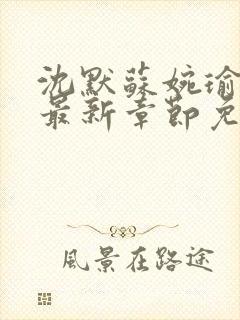 沈默蘇婉瑜
最新章節免
風景在路途